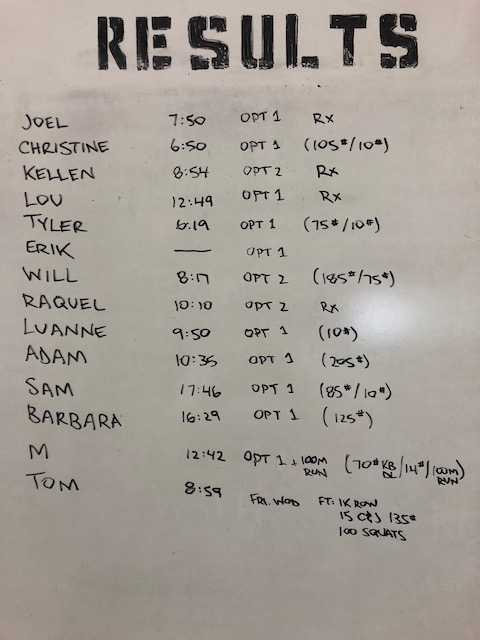 RESULTS
JOEL 7:50 OPT 1 Rx
CHRISTINE 6:50 OPT 1 (105#/10#)
KELLEN 8:54 OPT 2 Rx
LOU 12:49 OPT 1 Rx
TYLER 6:19 OPT 1 (75#/10#)
ERIK — OPT 1
WILL 8:17 OPT 2 (185#/75#)
RAQUEL 10:10 OPT 2 Rx
LUANNE 9:50 OPT 1 (10#)
ADAM 10:35 OPT 1 (205#)
SAM 17:46 OPT 1 (85#/10#)
BARBARA 16:29 OPT 1 (125#)
M 12:42 OPT 1 + 100M RUN (70# KB DL/14#/100M RUN)
TOM 8:59 FRI. WOD FT: 1K ROW
15 C&J 135#
100 SQUATS